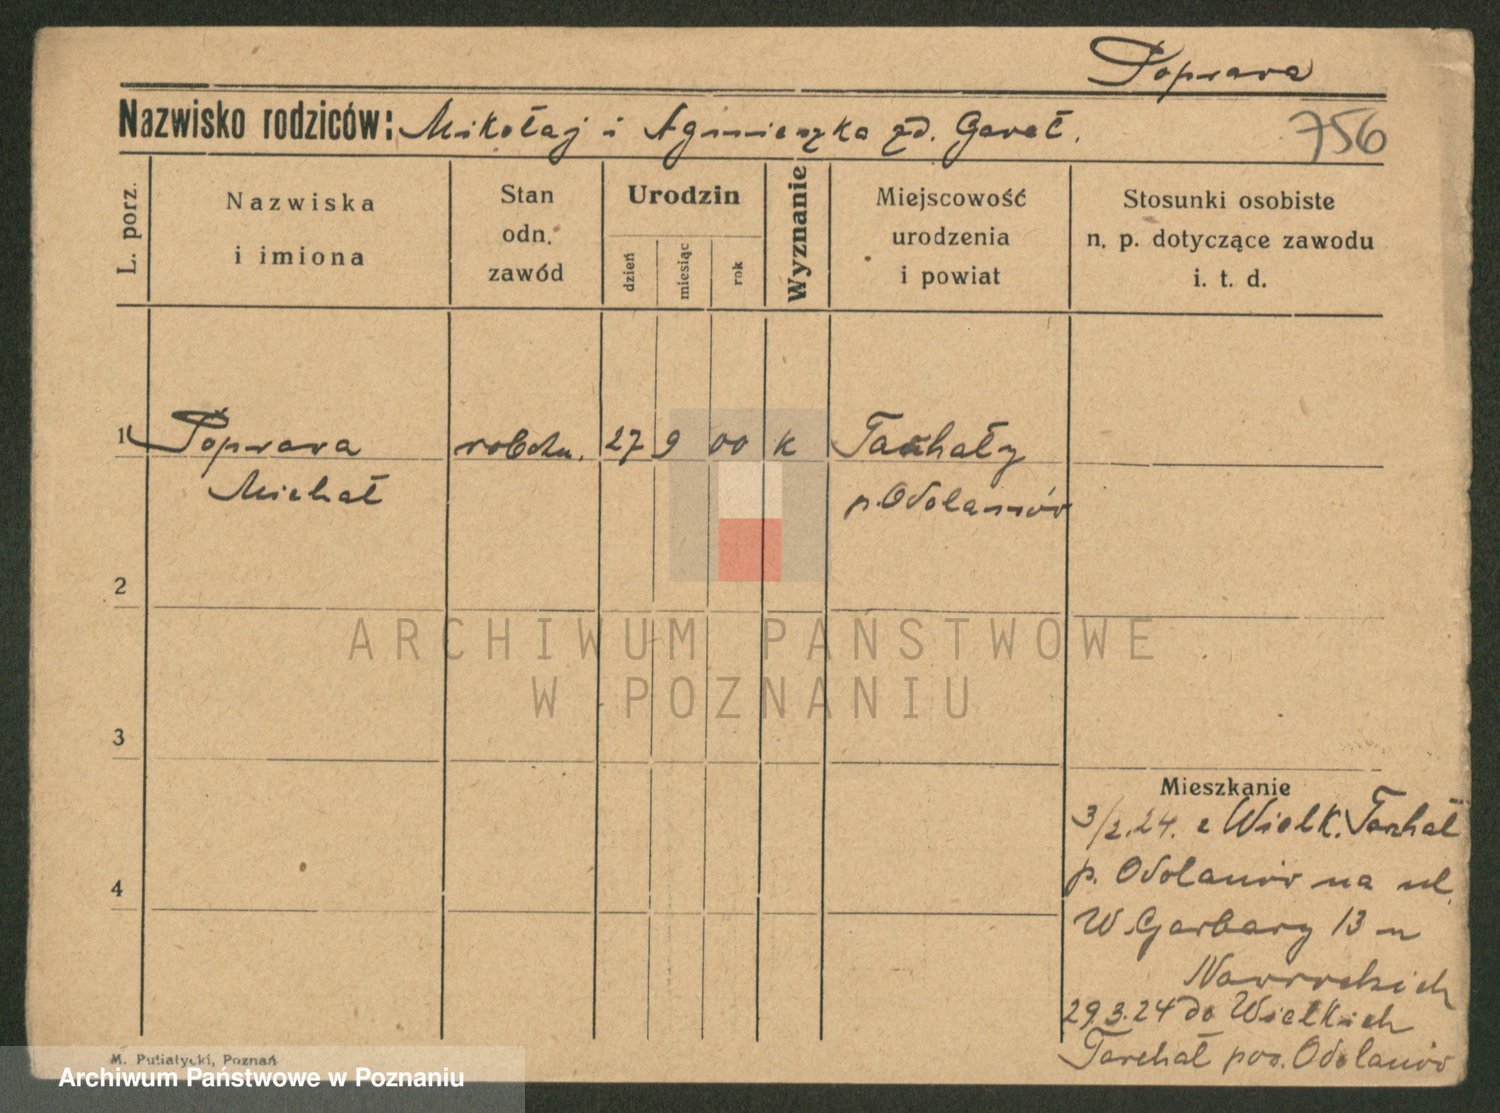 Poprawa
Nazwisko rodziców: Mikołaj i Agnieszka zd. Gaweł.
756
L. porz.
Nazwiska
i imiona
Stan
odn.
zawód
Urodzin
dzień
miesiąc
rok
Wyznanie
Miejscowość
urodzenia
i powiat
Stosunki osobiste
n. p. dotyczące zawodu
i. t. d.
1 Poprawa robotn. 27 9 00 k Tarchały
Michał p. Odolanów
2
3
4
Mieszkanie
3/2.24. z Wielk. Tarchał
p. Odolanów na ul.
W Garbary 13 u
Nawrockich
29.3.24 do Wielkich
Tarchał pow. Odolanów
M. Putiatycki, Poznań
ARCHIWUM PAŃSTWOWE
W POZNANIU
Archiwum Państwowe w Poznaniu